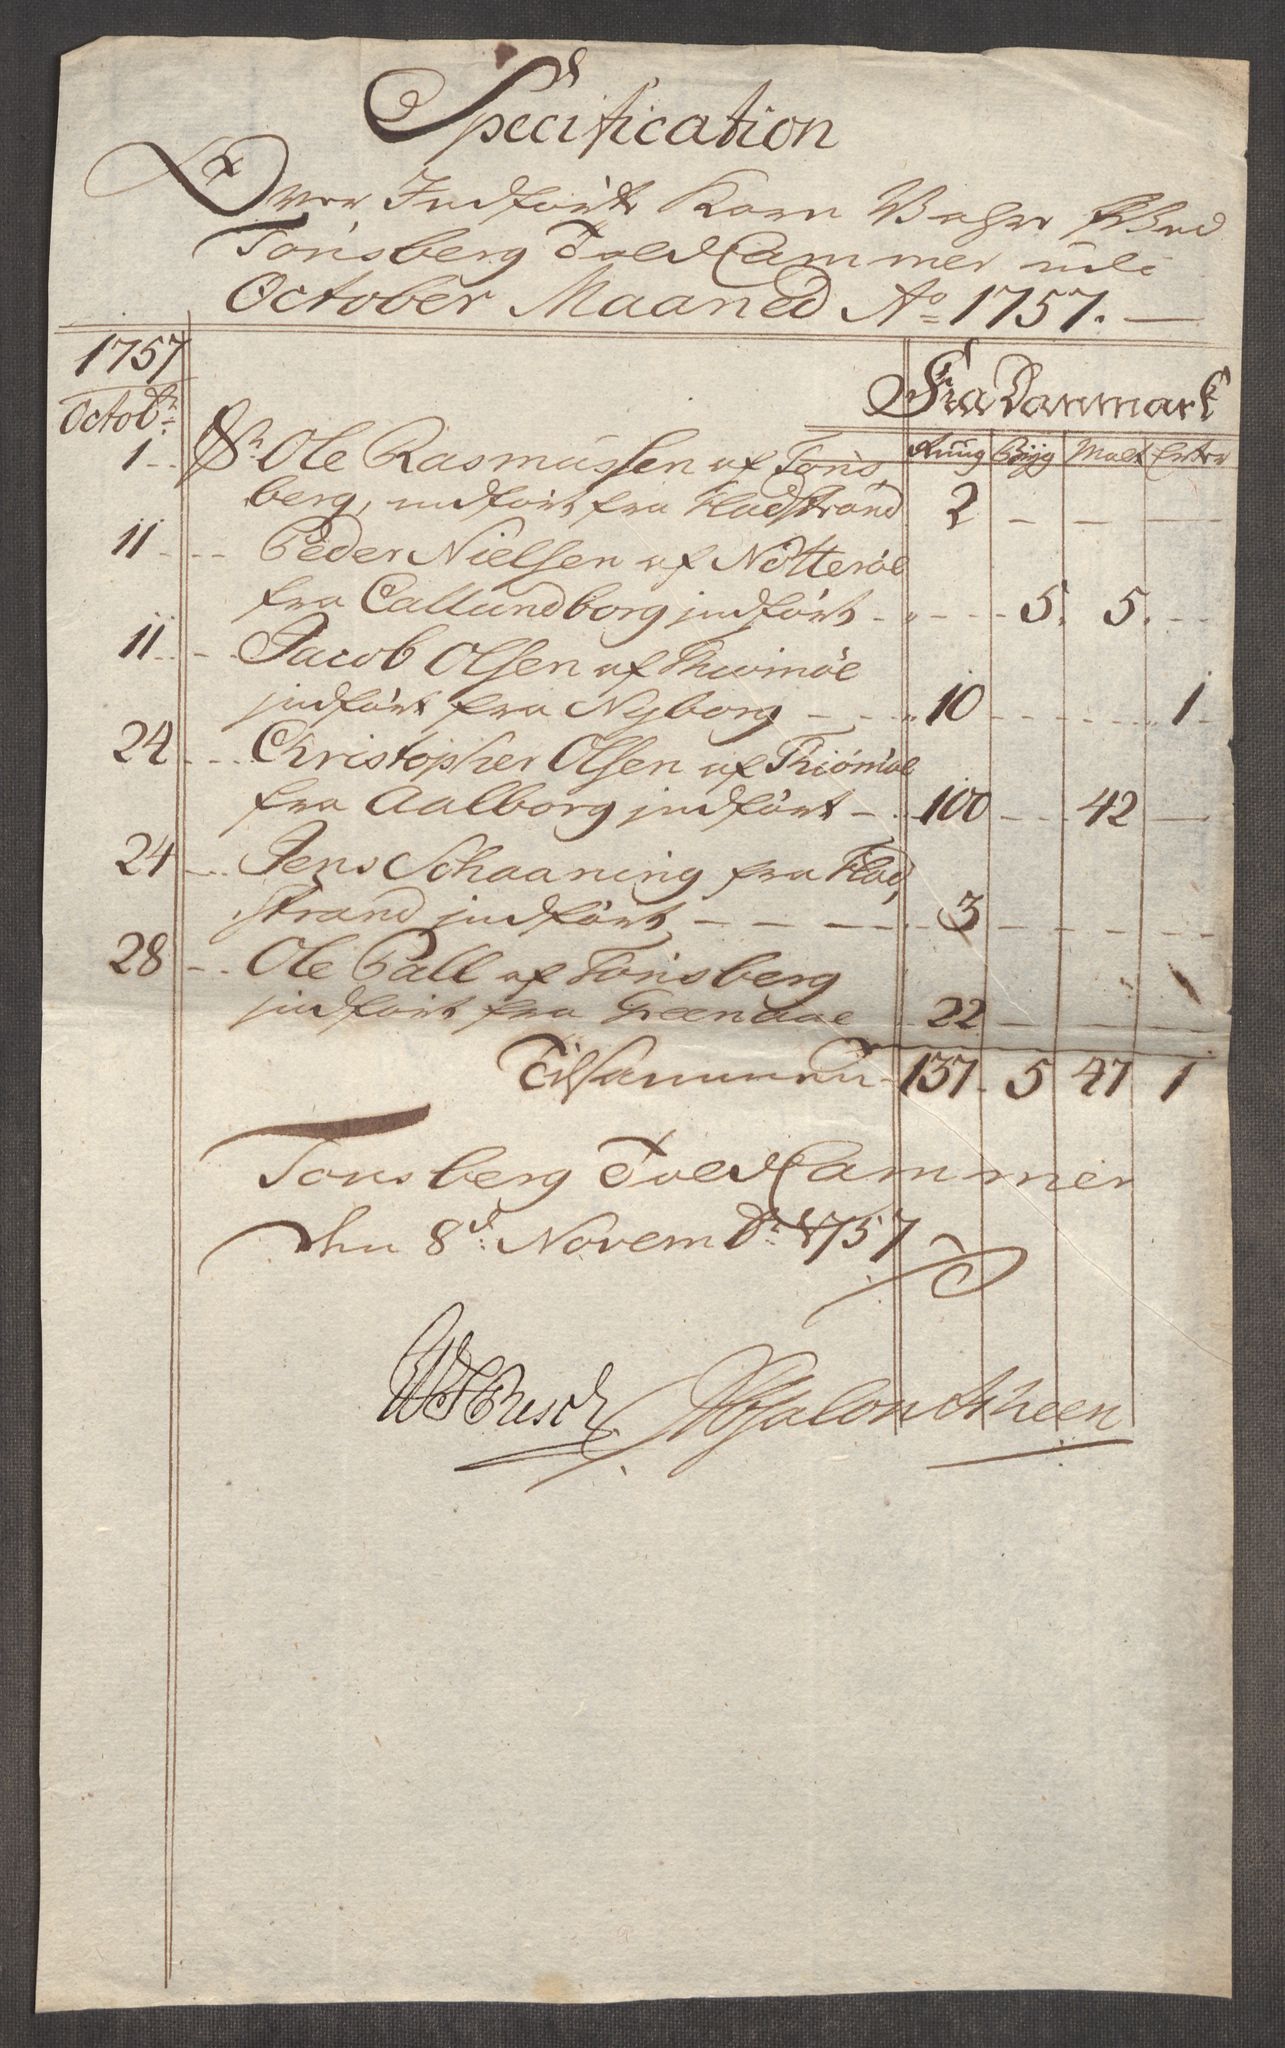 Specification
Over Indførte Korn Vahre ved
Tønsberg Told Cammer udi
October Maaned Ao 1757.
1757
Fra Danmark
Octobr:
Rùùg Bÿg Malt Erter
1 Sr Ole Rasmussen af Tøns,
berg, indført fra Fladstrand 2
11 Peder Nielsen af Nøtterøe
fra Callundborg indført 5. 5.
11 Jacob Olsen af
indført fra Nyborg 10 1
24 Christopher Olsen af Thiømøe
fra Aalborg indført 100 42
24 Jens Schaaning fra Flad,
strand indført 3
28 Ole Pall af Tønsberg
indført fra Greenaae 22
Tilsammen 137 5 47 1
Tønsberg Told Cammer
den 8de: Novembr: 1757